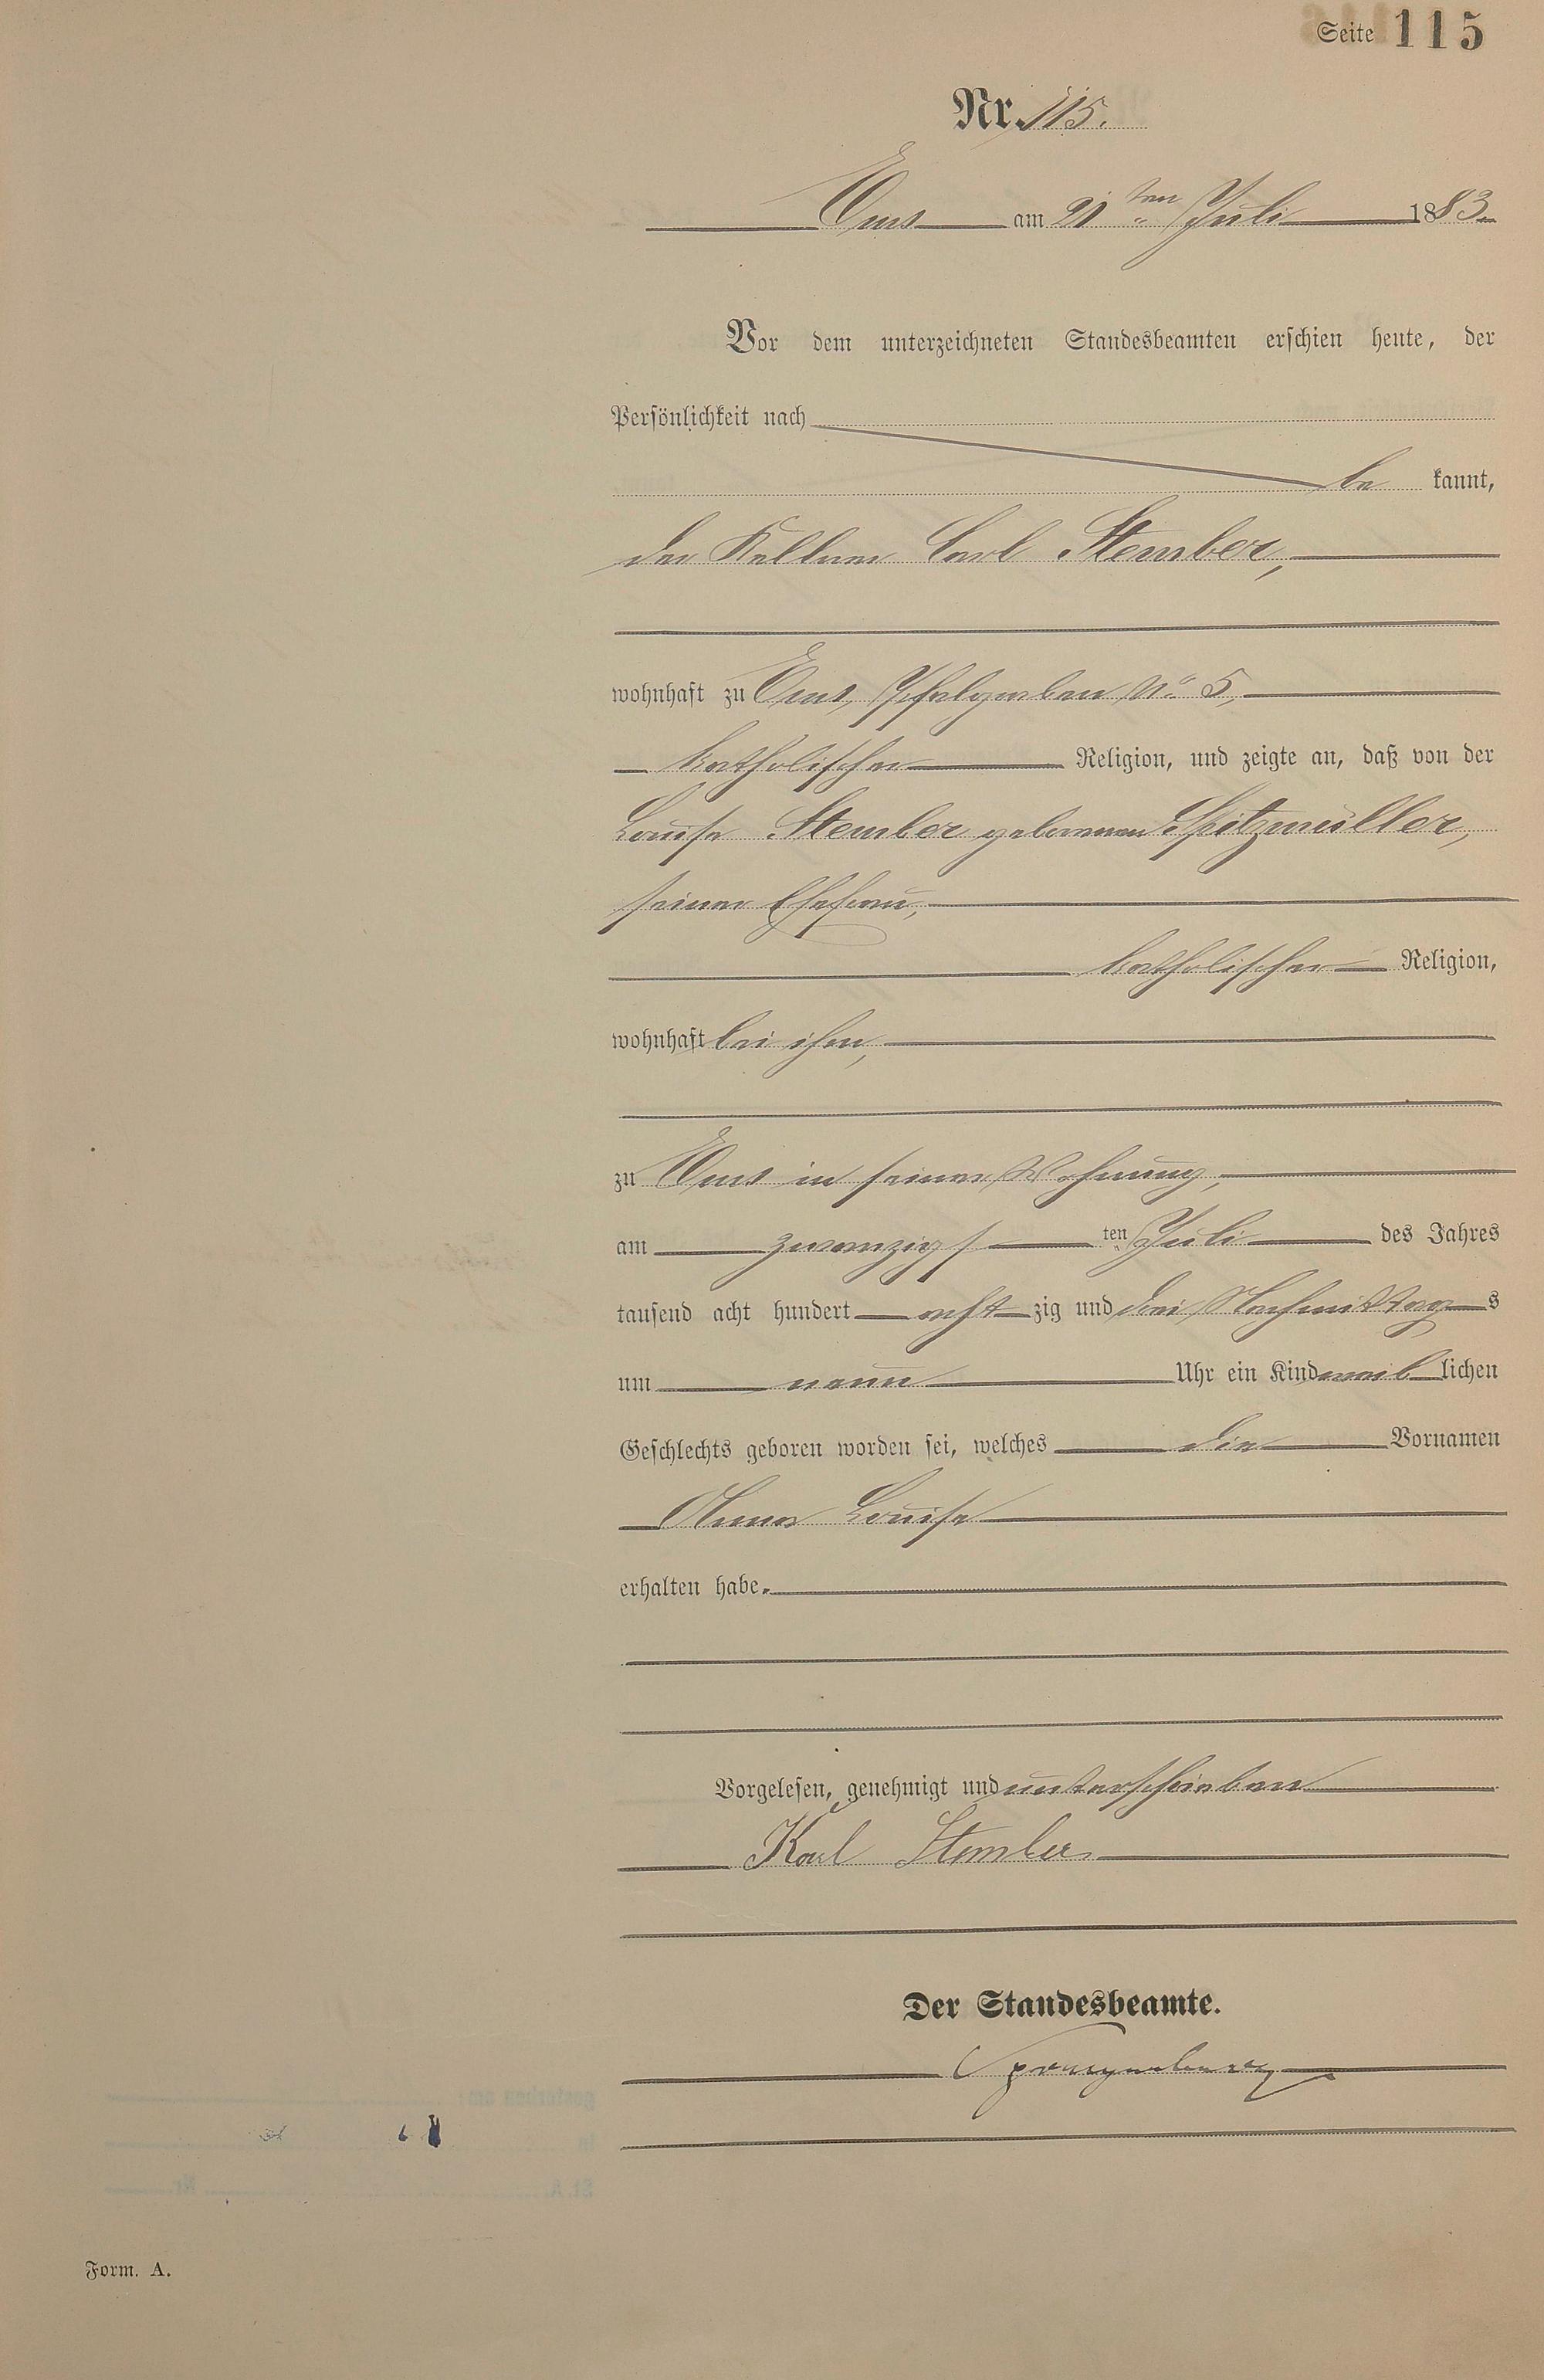 Seite 115
Nr. 115.
Ems am 21ten Juli 1883.
Vor dem unterzeichneten Standesbeamten erschien heute, der
Persönlichkeit nach
be kannt,
der Kellner Carl Stember,
wohnhaft zu Ems, Pfahlgraben No 5,
katholischer Religion, und zeigte an, daß von der
Louise Stember geborenen Spitzmüller,
seiner Ehefrau,
katholischer Religion,
wohnhaft bei ihm,
zu Ems in seiner Wohnung,
am zwanzigs ten Juli des Jahres
tausend acht hundert acht zig und drei Nachmittag s
um neun Uhr ein Kind weib lichen
Geschlechts geboren worden sei, welches die Vornamen
Anna Louise
erhalten habe.
Vorgelesen, genehmigt und unterschrieben
Karl Stember
Der Standesbeamte.
Form. A.